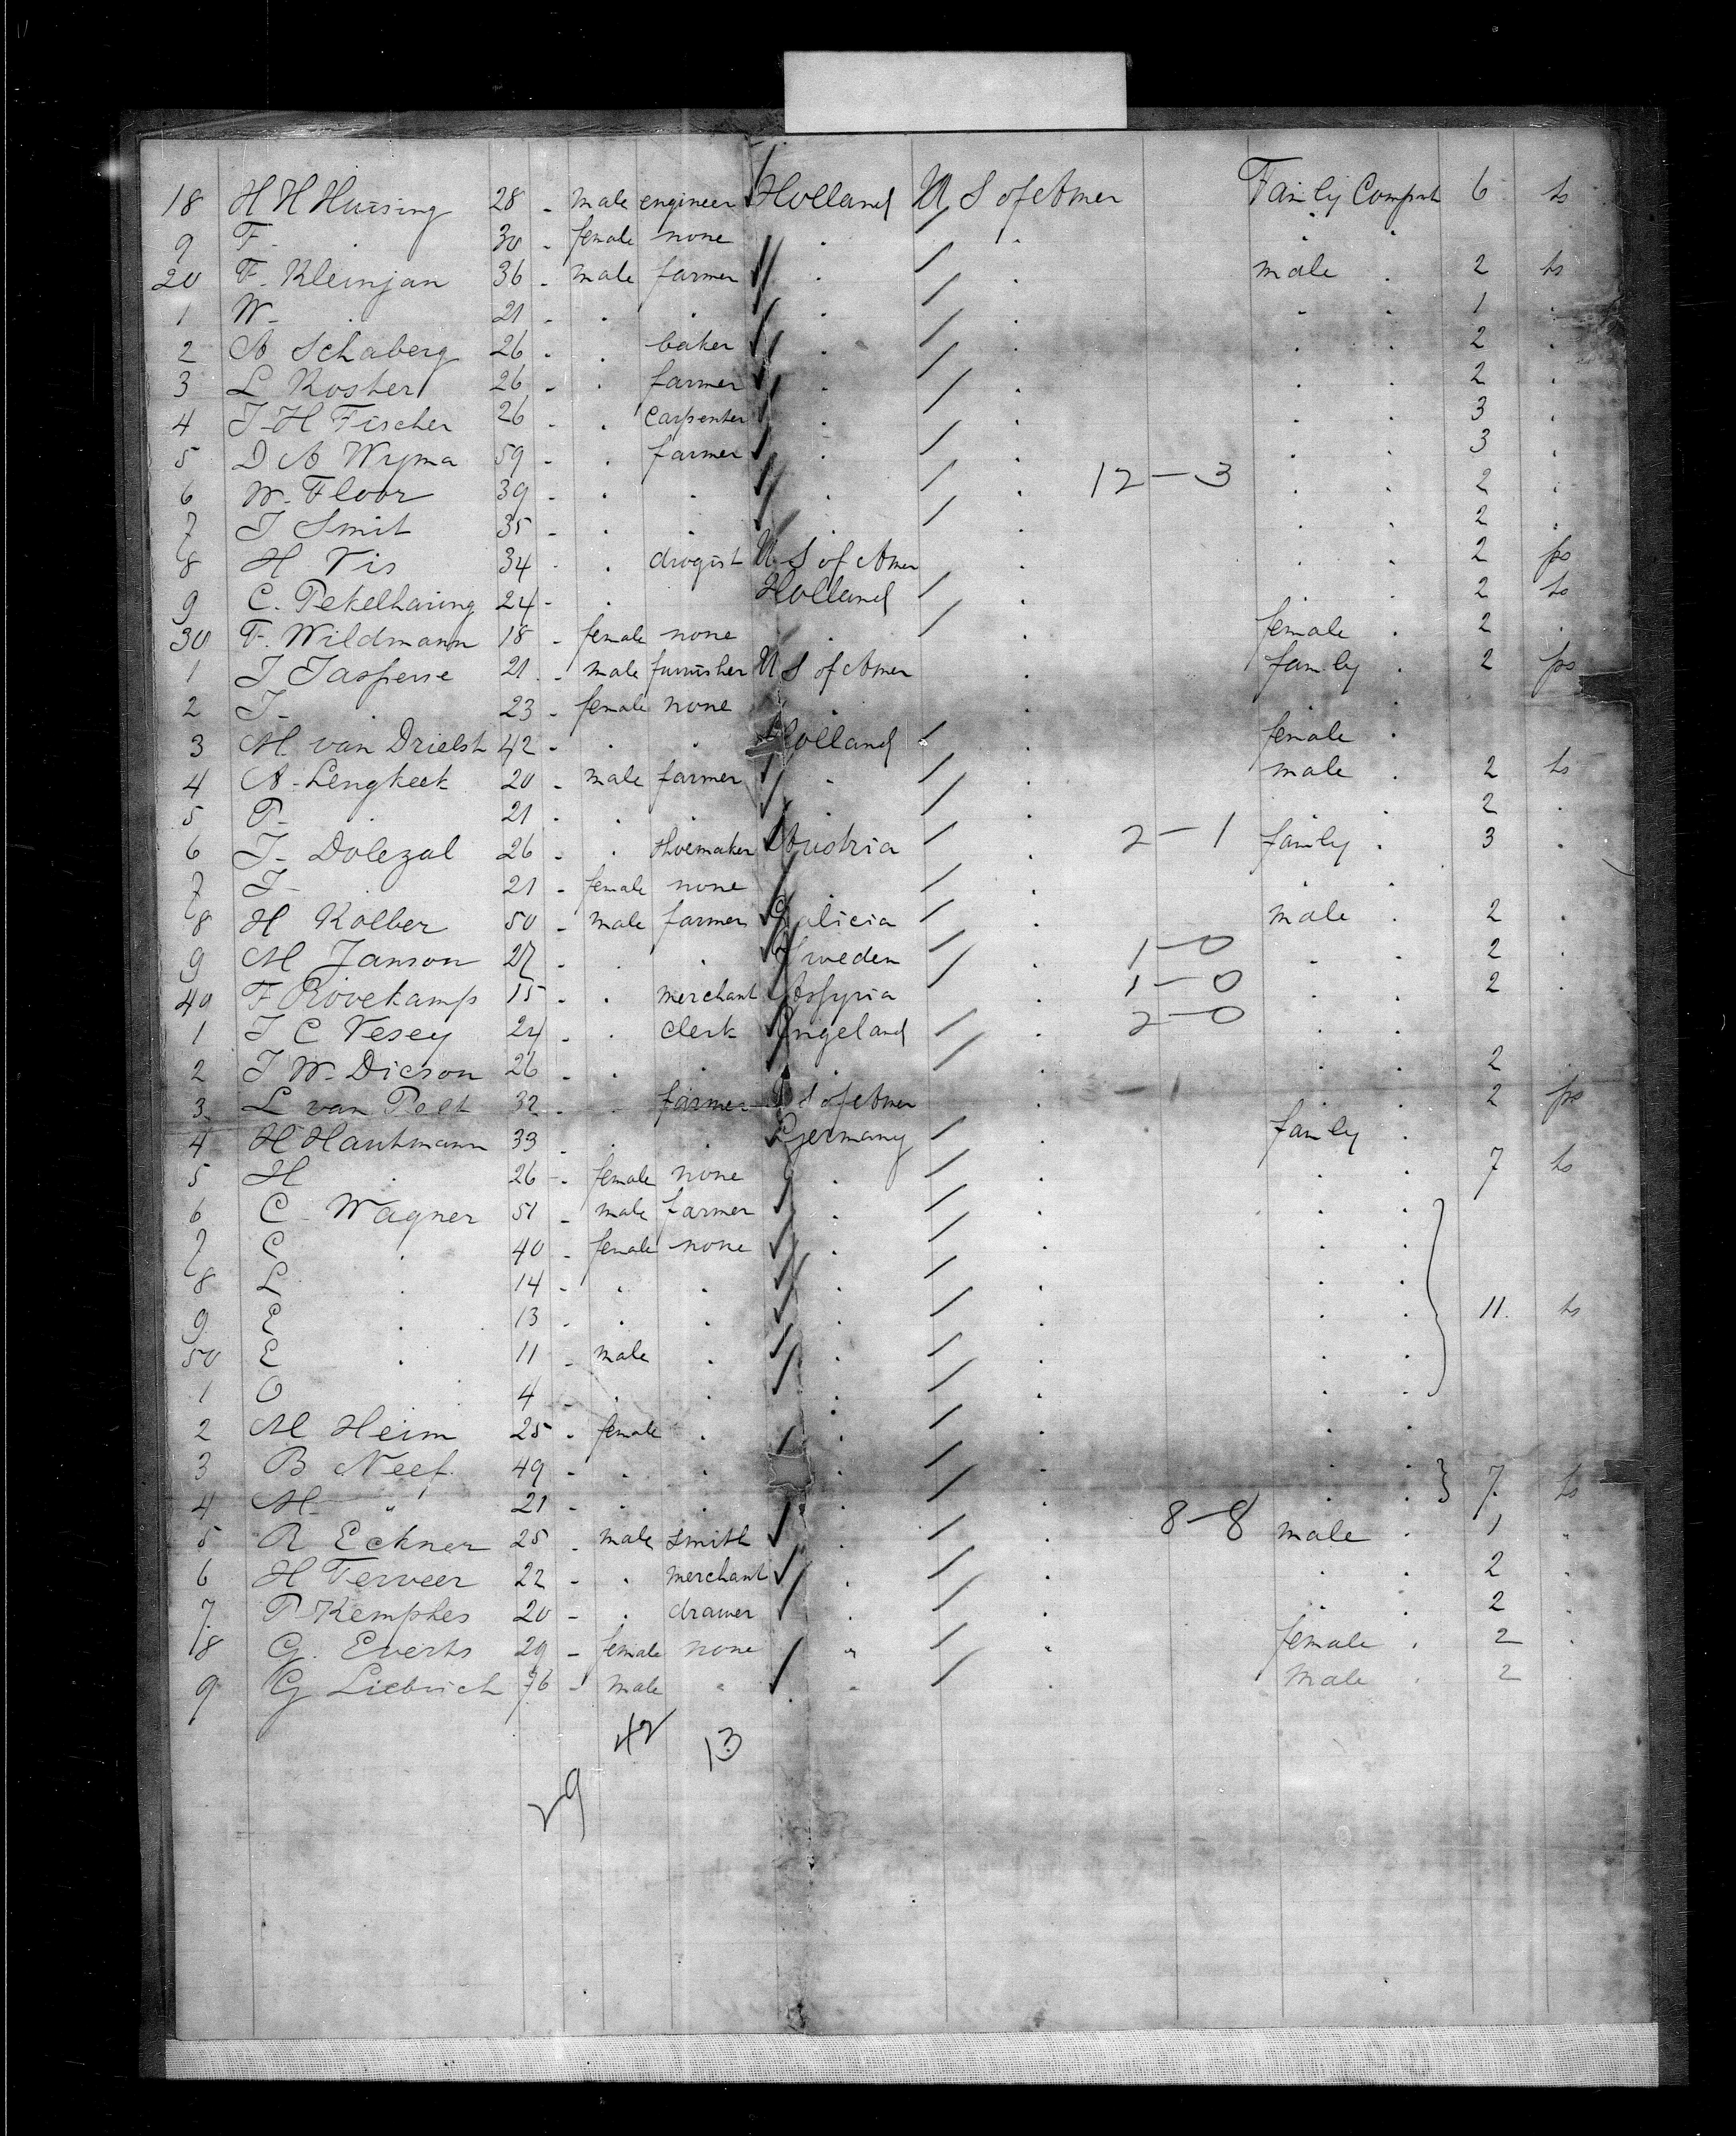 18 H H Huising 28 - male engineer Holland U S of Amer Family Compmt 6 ts
9 F. . 30 - female none . . . .
20 F. Kleinjan 36 - male farmer . . male . 2 ts
1 W- . 21 - . . . . . . 1 .
2 A Schaberg 26 - . baker . . . . 2 .
3 L Koster 26 - . farmer . . . . 2 .
4 J-H Fischer 26 - . carpenter . . . . 3 .
5 D A Wyma 59 - . farmer . . . . 3 .
6 W. Floor 39 - . . . . 12-3 . . 2 .
7 J Smit 35 - . . . . . . 2 .
8 H Vis 34 - . drogist U S of Amer . . . 2 ps
9 C. Pekelharing 24 - . Holland . . . 2 ts
30 F. Wildmann 18 - female none . . female . 2 .
1 J Jasperse 21 - male furnisher U S of Amer . family . 2 ps
2 J- . 23 - female none . .
3 M van Drielst 42 - . . Holland . female .
4 A-Lengkeek 20 - male farmer . . male . 2 ts
5 P- . 21 - . . . . . . 2 .
6 J- Dolezal 26 - . shoemaker Austria . 2-1 family . 3 .
7 J- . 21 - female none . . . .
8 H Kolber 50 - male farmer Galicia . male . 2 .
9 M Janson 27 - . . Sweden . 1-0 . . 2 .
40 F Rövekamp 15 - . merchant Assyria . 1-0 . . 2 .
1 J C Vesey 24 - . clerk Engeland . 2-0 . .
2 J W- Dicson 26 - . . . . . . 2 .
3 L van Pelt 32 - . farmer U S of Amer . 3-1 . . 2 ps
4 H Hauhmann 33 - . . Germany . family .
5 H . 26 - female none . . . . 7 ts
6 C - Wagner 51 - male farmer . . . .
7 C . 40 - female none . . . .
8 L . 14 - . . . . . .
9 E . 13 - . . . . . . 11. ts
50 E . 11 - male . . . . .
1 O . 4 - . . . . . .
2 M Heim 25 - female . . . .
3 B Neef 49 - . . . . . . 7. ts
4 M- " 21 - . . . . . .
5 R Eckner 25 - male smith . . 8-8 male . 1 "
6 H Terveer 22 - . merchant . . . . 2 .
7 P Kemphes 20 - . drawer . . . . 2 .
8 G. Everts 29 - female none " . female . 2 .
9 G Liebrich 76 - male " " . male . 2 .
42 13
29